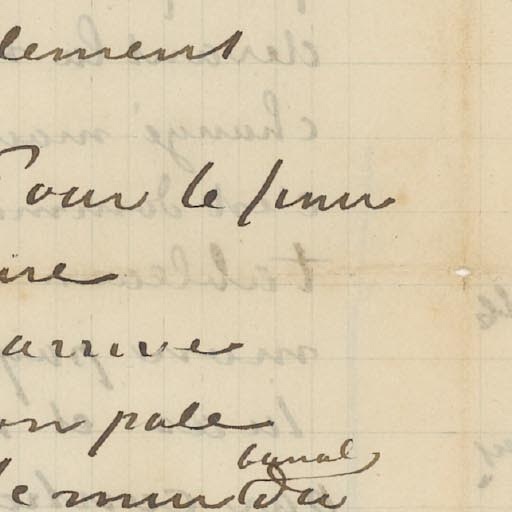 lement
Pour le
ire
arrive
on pale
banal
le mur du